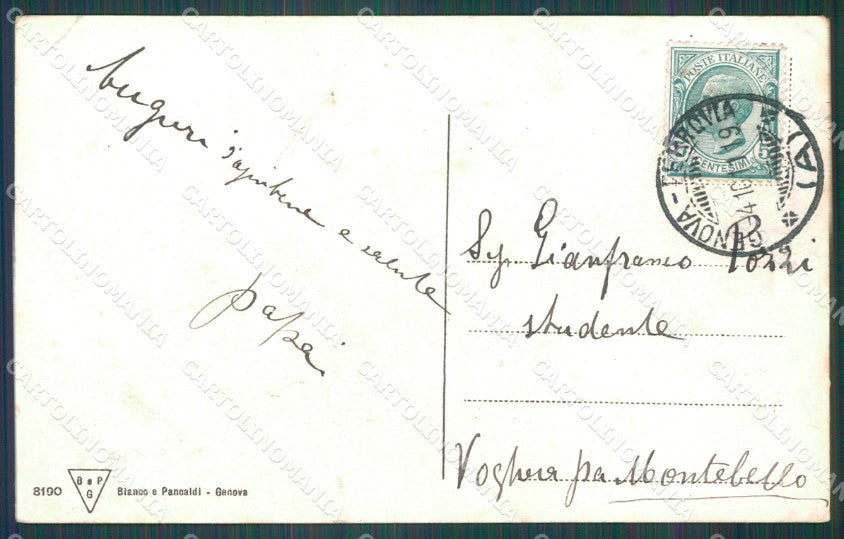 Auguri d'ogni bene e salute
papà
POSTE ITALIANE
CENTESIMI
GENOVA - FERROVIA
(A)
Sig Gianfranco Pozzi
studente
Voghera pa Montebello
8190
B e P
G
Bianco e Pancaldi - Genova
CARTOLINOMANIA